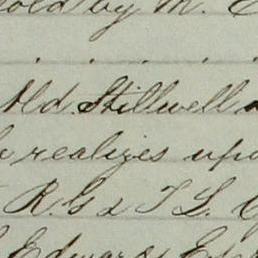 old by M.
. . . . .
Old. Stillwell
realizes upo
R. G & T L.
Edwards Es